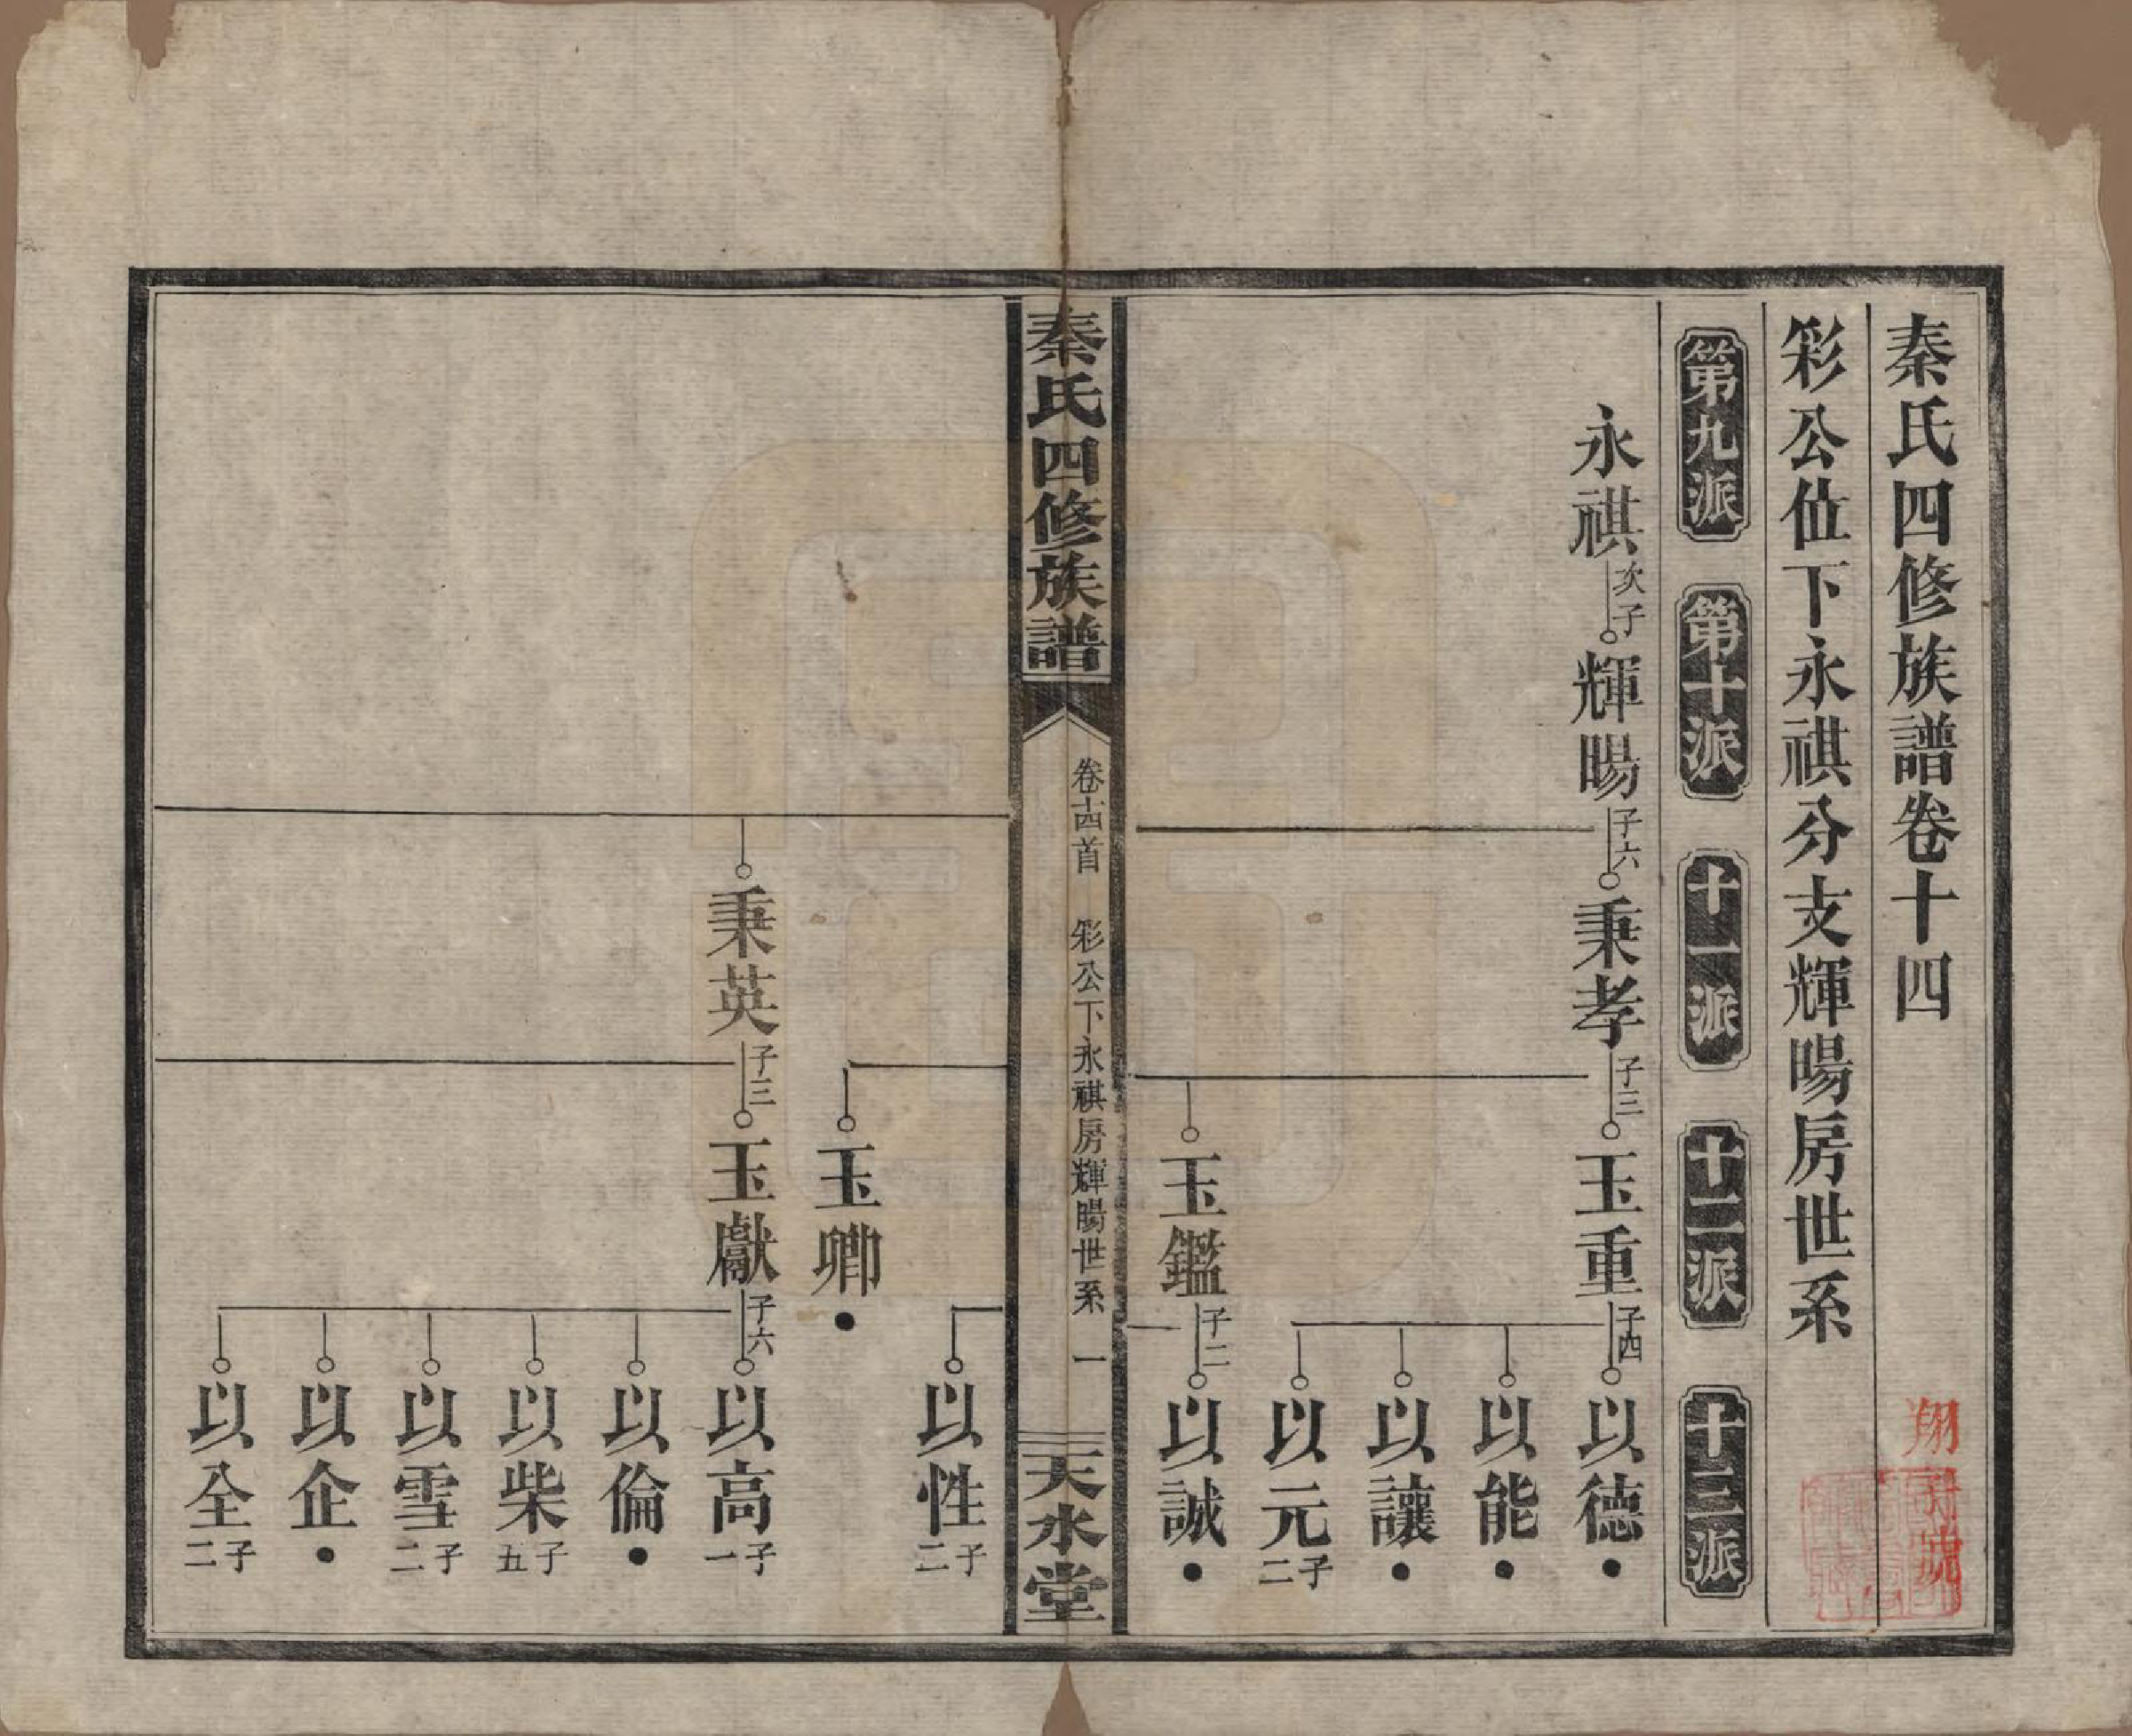 秦氏四修族譜卷十四
彩公位下永祺分支輝暘房世系
第九派 第十派 十一派 十二派 十三派
永祺 次子 輝暘 子六 秉孝 子三 玉重 子四 以德
以能
以讓
以元 子二
玉鑑 子二 以誠
秦氏四修族譜 卷十四首 彩公下永祺房輝暘世系 一 天水堂
以性 子二
玉卿
秉英 子三 玉獻 子六 以高 子一
以倫
以柴 子五
以雪 子二
以企
以全 子二
翔
號